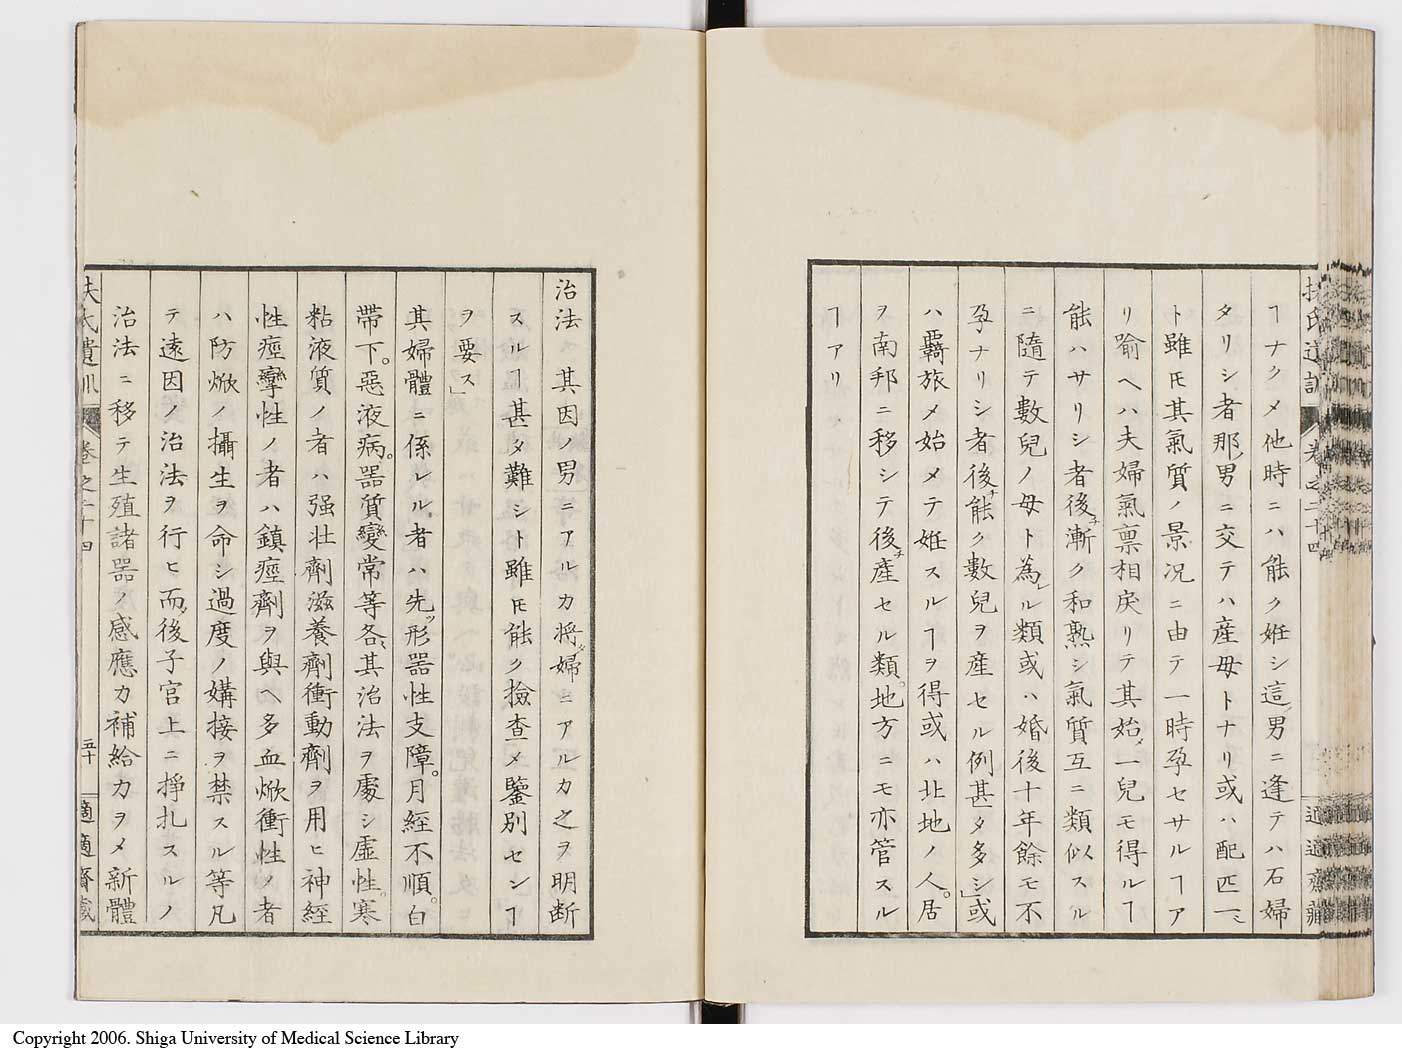 扶氏遺訓 卷之二十四 適適齋藏
ヿナクメ他時ニハ能ク姙シ這ノ男ニ逢テハ石婦
タリシ者那ノ男ニ交テハ産母トナリ或ハ配匹一ニ
ト雖𪜈其氣質ノ景况ニ由テ一時孕セサルヿア
リ喻ヘハ夫婦氣禀相戾リテ其始メ一兒モ得ルヿ
能ハサリシ者後チ漸ク和熟シ氣質互ニ類似スル
ニ隨テ數兒ノ母ト為レル類或ハ婚後十年餘モ不
孕ナリシ者後チ能ク數兒ヲ産セル例甚タ多シ」或
ハ羇旅メ始メテ姙スルヿヲ得或ハ北地ノ人。居
ヲ南邦ニ移シテ後チ産セル類。地方ニモ亦管スル
ヿアリ
治法 其因ノ男ニアルカ將タ婦ニアルカ之ヲ明断
スルヿ甚タ難シト雖𪜈能ク撿查メ鑒別センヿ
ヲ要ス」
其婦體ニ係レル者ハ先ツ形器性支障。月經不順。白
帶下。惡液病。器質變常等各〻其治法ヲ處シ虛性。寒
粘液質ノ者ハ强壯劑滋養劑衝動劑ヲ用ヒ神經
性痙攣性ノ者ハ鎮痙劑ヲ與ヘ多血焮衝性ノ者
ハ防焮ノ攝生ヲ命シ過度ノ媾接ヲ禁スル等凡
テ遠因ノ治法ヲ行ヒ而ノ後子宮上ニ掙扎スルノ
治法ニ移テ生殖諸器ノ感應力補給力ヲメ新體
扶氏遺訓 卷之二十四 五十 適適齋藏
Copyright 2006. Shiga University of Medical Science Library